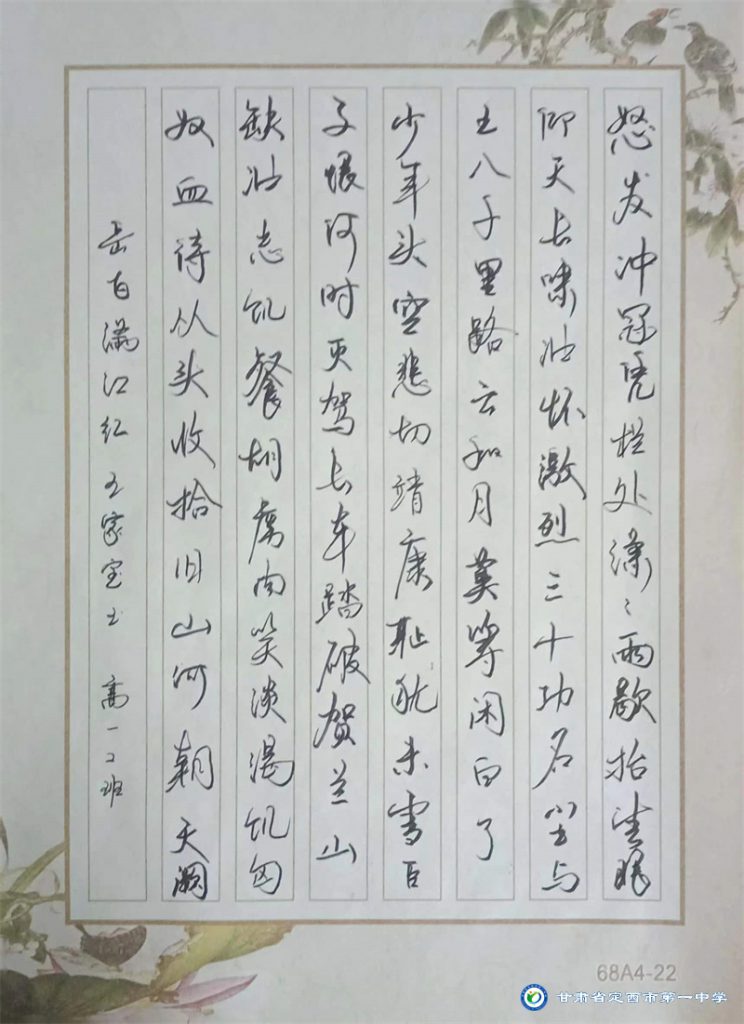 怒发冲冠凭栏处潇々雨歇抬望眼
仰天长啸壮怀激烈三十功名尘与
土八千里路云和月莫等闲白了
少年头空悲切靖康耻犹未雪臣
子恨何时灭驾长车踏破贺兰山
缺壮志饥餐胡虏肉笑谈渴饮匈
奴血待从头收拾旧山河朝天阙
岳飞满江红 王家宝书 高一2班
68A4-22
甘肃省定西市第一中学